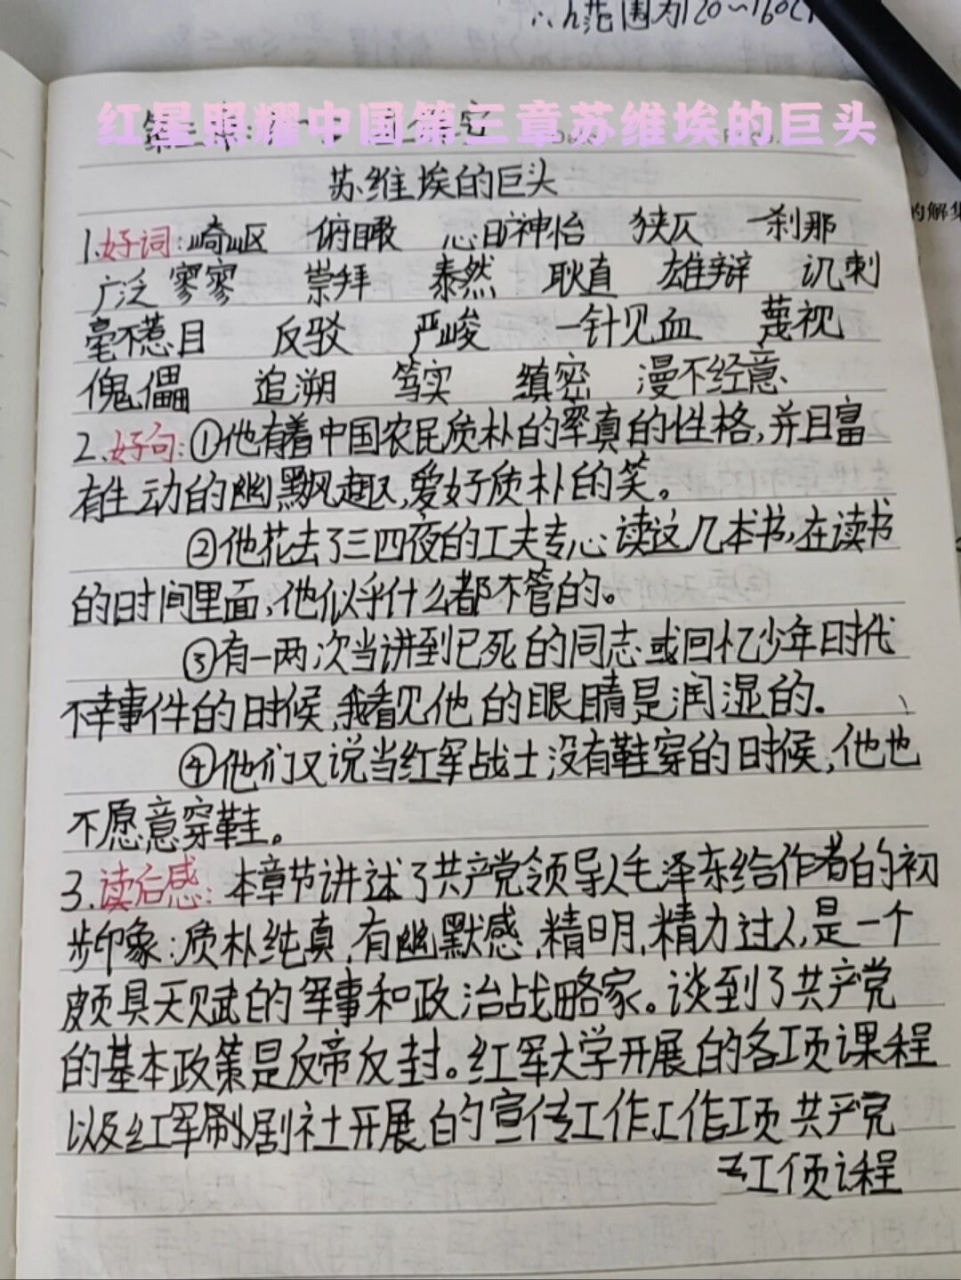 ∴h范围为120~160c
红星照耀中国第三章苏维埃的巨头
苏维埃的巨头
的解集
1.好词:崎岖 俯瞰 心旷神怡 狭仄 一刹那
广泛 寥寥 崇拜 泰然 耿直 雄辩 讥刺
毫不惹目 反驳 严峻 一针见血 蔑视
傀儡 追溯 笃实 缜密 漫不经意
2.好句:①他有着中国农民质朴的率真的性格,并且富
有生动的幽默风趣,爱好质朴的笑。
②他花去了三四夜的工夫专心读这几本书,在读书
的时间里面,他似乎什么都不管的。
③有一两次当讲到已死的同志或回忆少年时代
不幸事件的时候,我看见他的眼睛是润湿的.
④他们又说当红军战士没有鞋穿的时候,他也
不愿意穿鞋。
3.读后感:本章节讲述了共产党领导人毛泽东给作者的初
步印象:质朴纯真,有幽默感,精明,精力过人,是一个
颇具天赋的军事和政治战略家。谈到了共产党
的基本政策是反帝反封。红军大学开展的各项课程
以及红军剧社开展的宣传工作工作工项共产党
工 课程